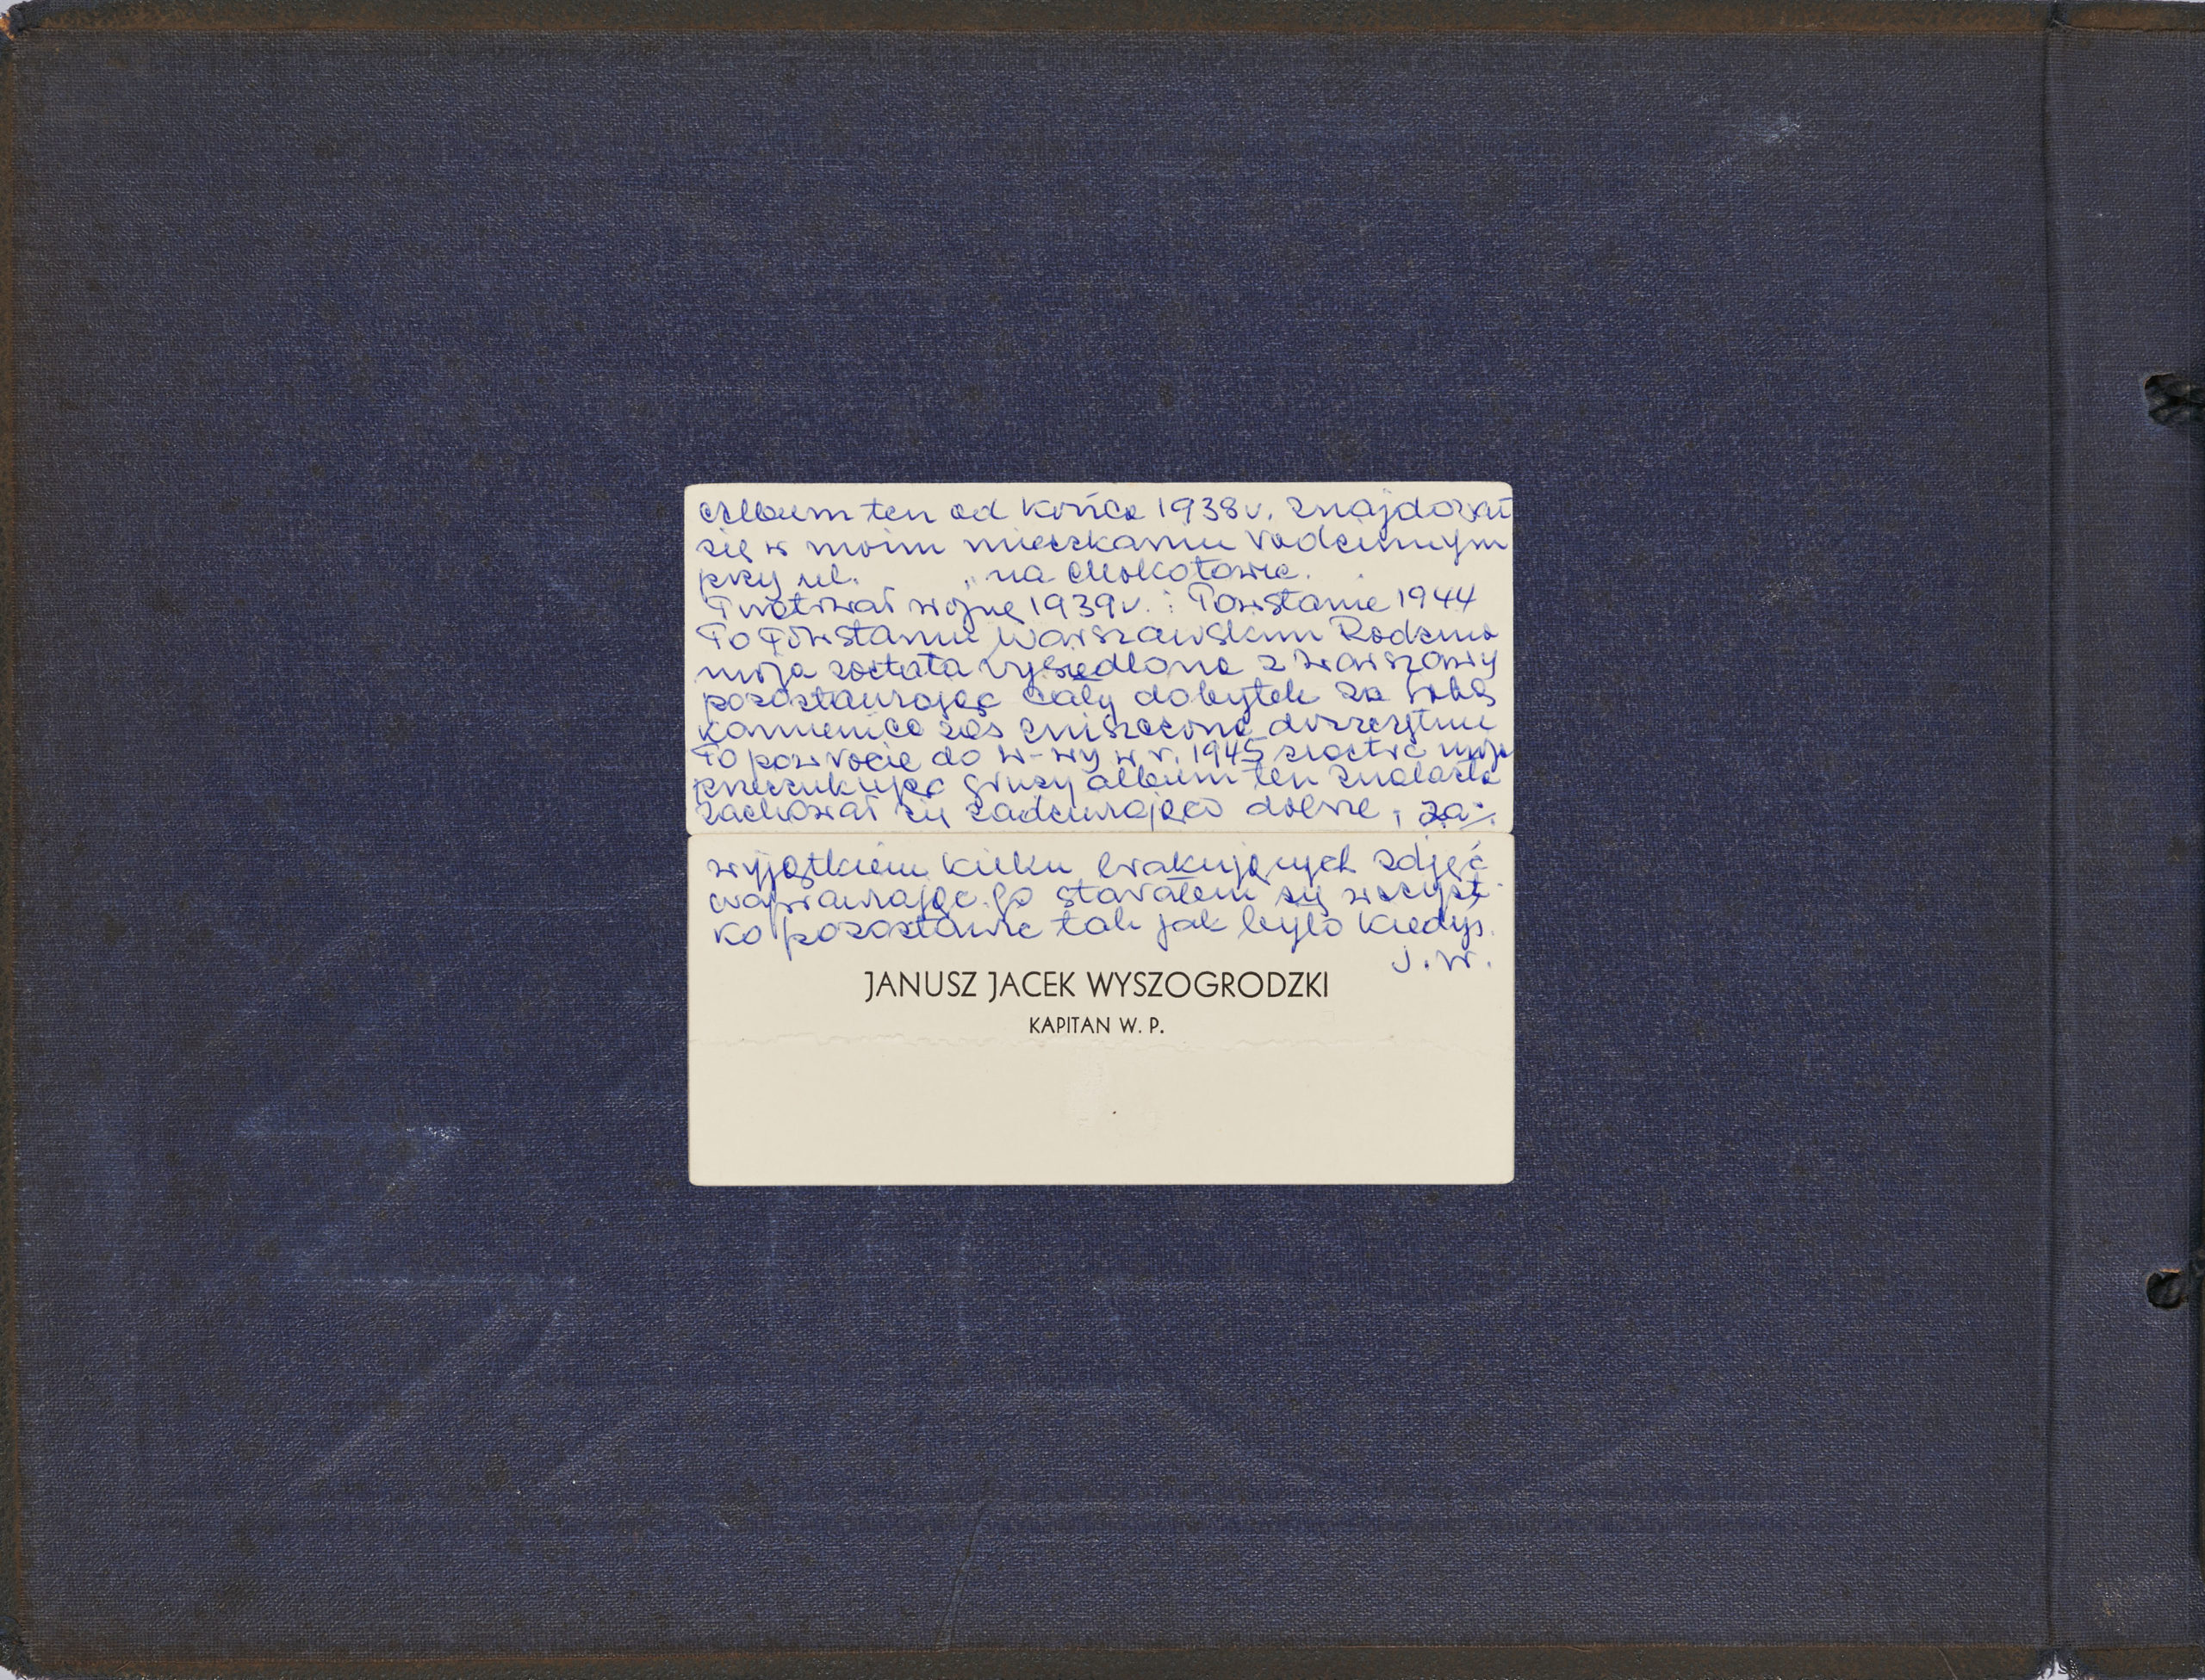 Album ten od końca 1938 r. znajdował
się w moim mieszkaniu rodzinnym
przy ul. na Mokotowie.
Przetrwał wojnę 1939 r. i Powstanie 1944
Po Powstaniu Warszawskim Rodzina
moja została wysiedlona z Warszawy
pozostawiając cały dobytek za sobą
kamienica zaś zniszczona doszczętnie
Po powrocie do W-wy w r. 1945 siostra moja
przeszukując gruzy album ten znalazła
zachował się zadziwiająco dobrze, za
wyjątkiem kilku brakujących zdjęć
naprawiając go starałem się wszyst-
ko pozostawić tak jak było kiedyś.
J.W.
JANUSZ JACEK WYSZOGRODZKI
KAPITAN W. P.